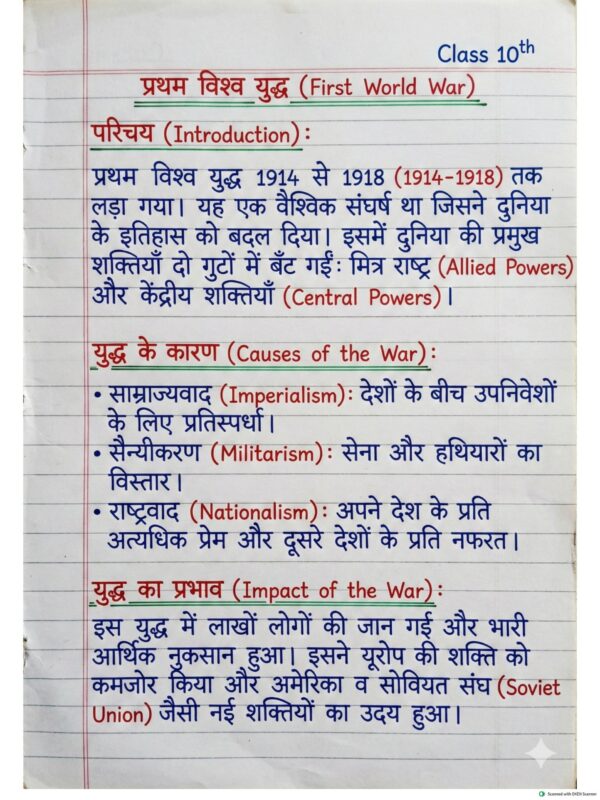 Class 10th
प्रथम विश्व युद्ध (First World War)
परिचय (Introduction):
प्रथम विश्व युद्ध 1914 से 1918 (1914-1918) तक
लड़ा गया। यह एक वैश्विक संघर्ष था जिसने दुनिया
के इतिहास को बदल दिया। इसमें दुनिया की प्रमुख
शक्तियाँ दो गुटों में बँट गईं: मित्र राष्ट्र (Allied Powers)
और केंद्रीय शक्तियाँ (Central Powers)।
युद्ध के कारण (Causes of the War):
• साम्राज्यवाद (Imperialism): देशों के बीच उपनिवेशों
के लिए प्रतिस्पर्धा।
• सैन्यीकरण (Militarism): सेना और हथियारों का
विस्तार।
• राष्ट्रवाद (Nationalism): अपने देश के प्रति
अत्यधिक प्रेम और दूसरे देशों के प्रति नफरत।
युद्ध का प्रभाव (Impact of the War):
इस युद्ध में लाखों लोगों की जान गई और भारी
आर्थिक नुकसान हुआ। इसने यूरोप की शक्ति को
कमजोर किया और अमेरिका व सोवियत संघ (Soviet
Union) जैसी नई शक्तियों का उदय हुआ।
Scanned with OKEN Scanner